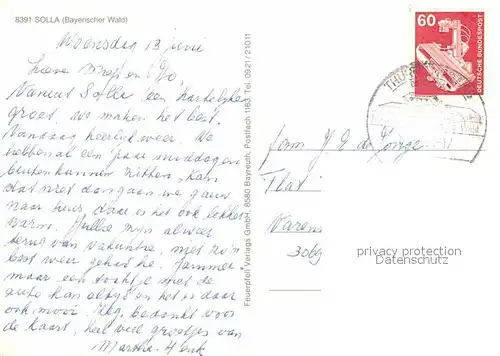 8391 SOLLA (Bayerischer Wald)
Woensdag 13 juni
Lieve
Vanuit Solla een hartelijke
groet. We maken het best.
Vandaag heerlijk weer. We
hebben al een paar middagen
buiten kunnen zitten. Kan
dat niet dan gaan we gauw
naar huis, daar is het ook lekker
warm. Jullie zijn alweer
terug van vakantie, met zo'n
best weer gehad he. Jammer
maar een tochtje met de
auto kan altijd en het is daar
ook mooi. Nog bedankt voor
de kaart, heel veel groetjes van
Martha - Henk
Feuerpfeil Verlags GmbH, 8580 Bayreuth, Postfach 1163, Tel. 09 21/2 10 11
60
DEUTSCHE BUNDESPOST
Fam. J. E. de Jonge
Flat
privacy protection
Datenschutz